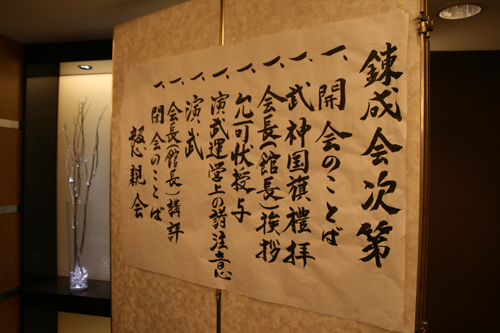 錬成会次第
一、開会のことば
一、武神国旗禮拝
一、会長(館長)挨拶
一、允可状授与
一、演武運営上の諸注意
一、演武
一、会長(館長)講評
一、閉会のことば
懇親会